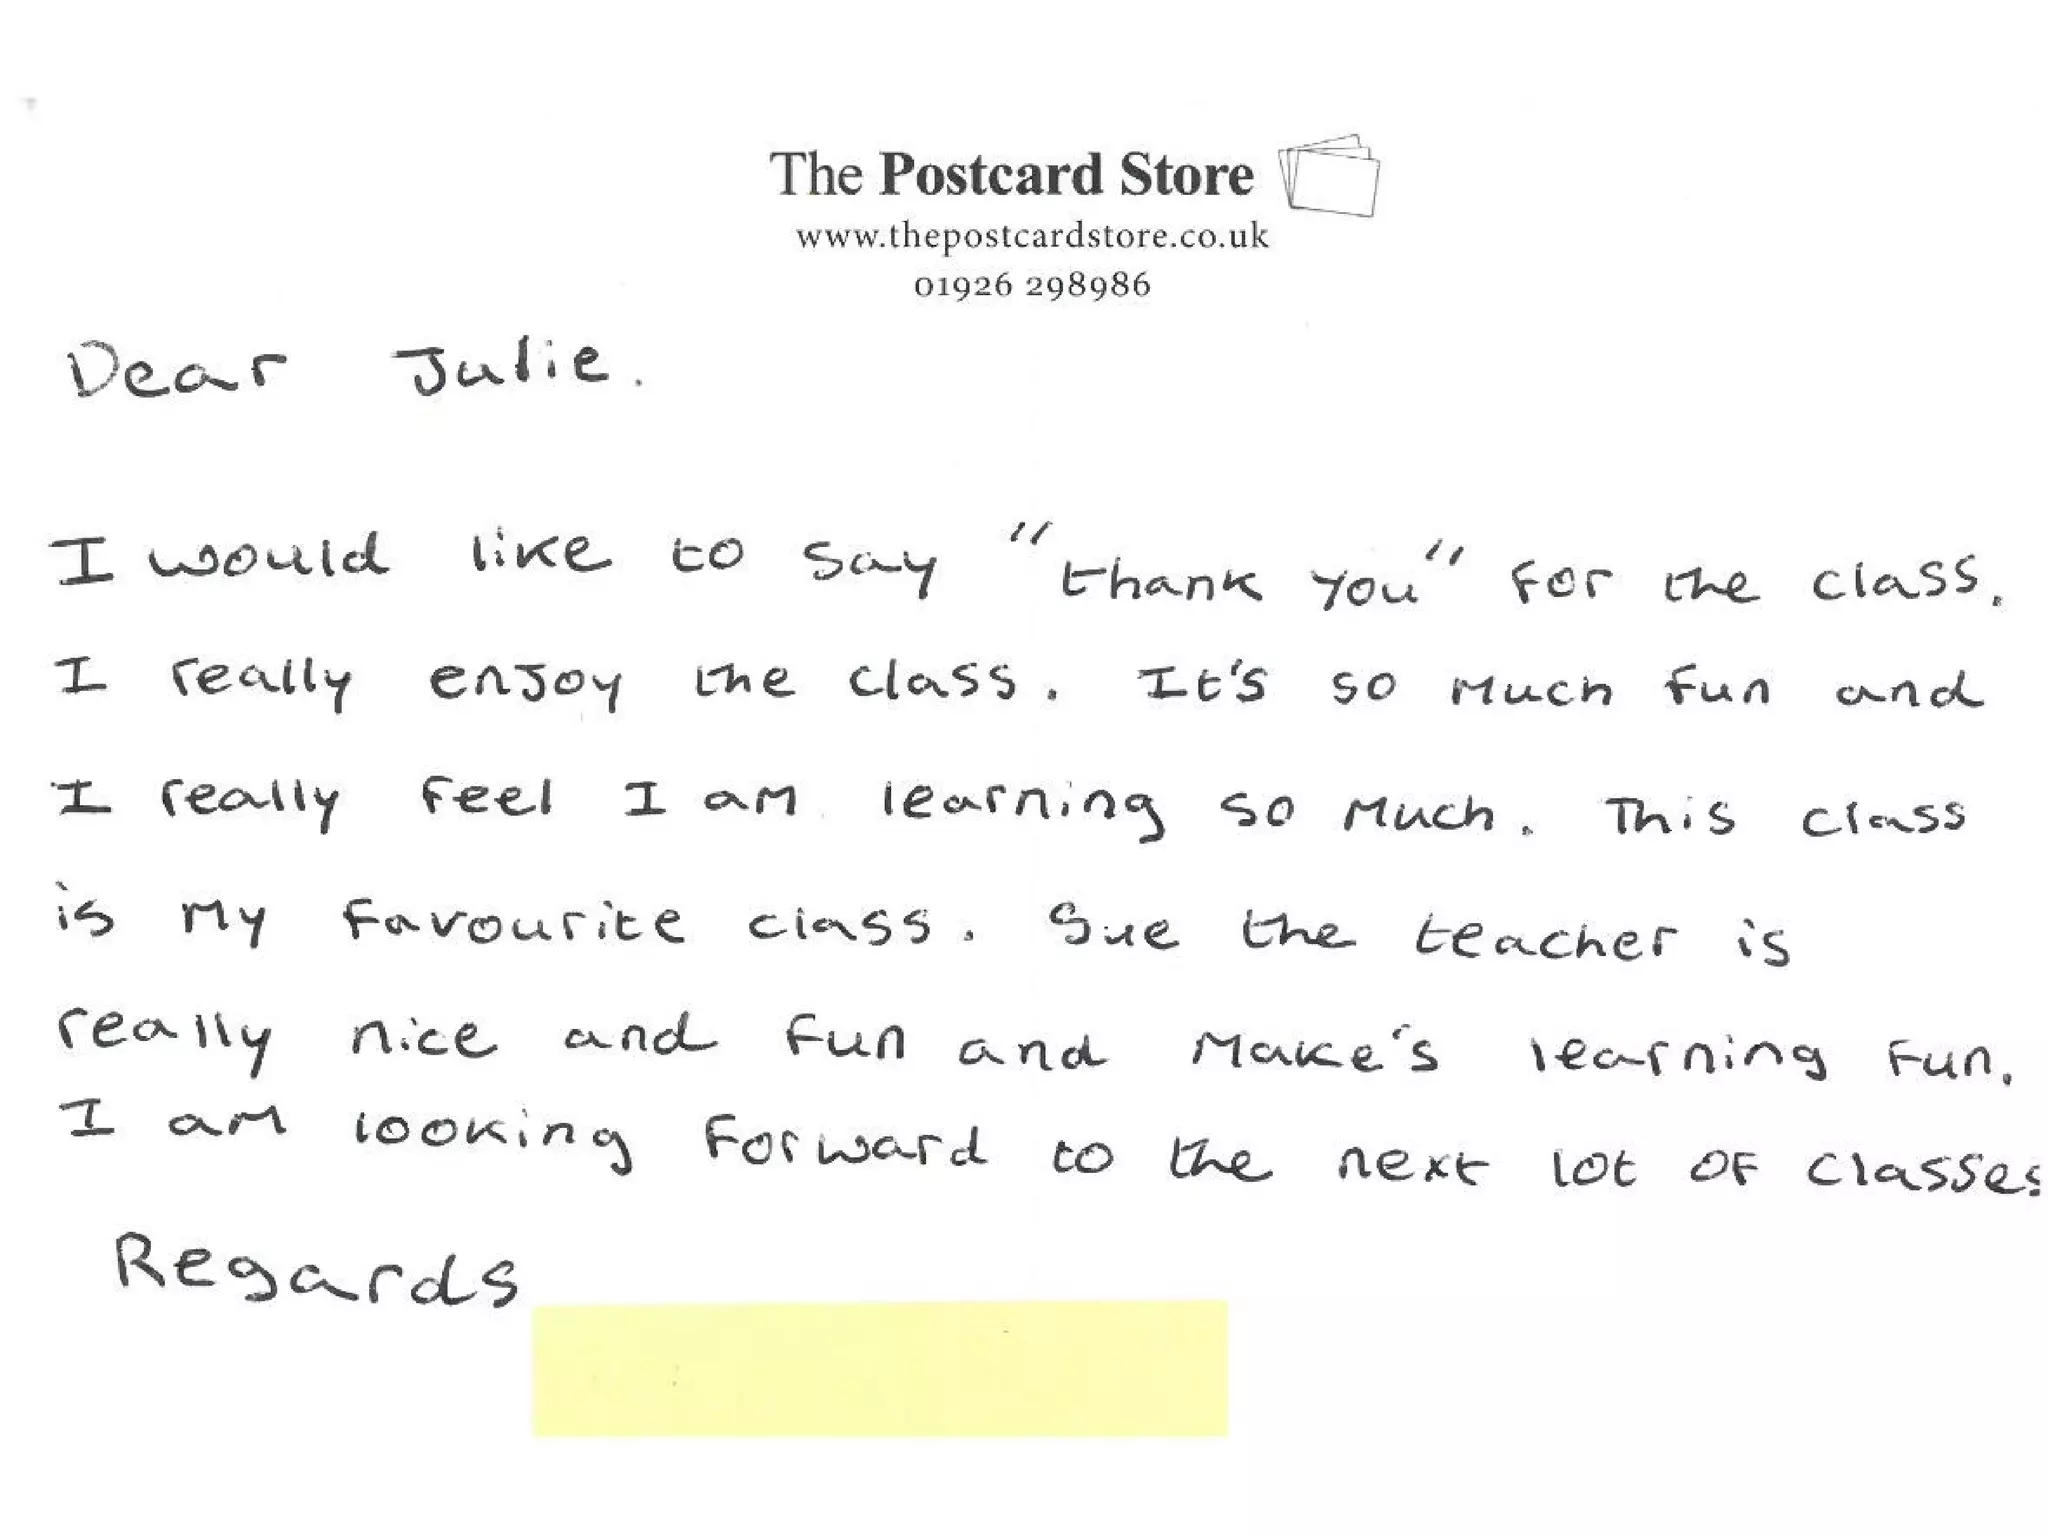 The Postcard Store
www.thepostcardstore.co.uk
01926 298986
Dear Julie.
I would like to say "thank you" for the class.
I really enjoy the class. It's so much fun and
I really feel I am learning so much. This class
is my favourite class. Sue the teacher is
really nice and fun and make's learning fun.
I am looking forward to the next lot of classes
Regards